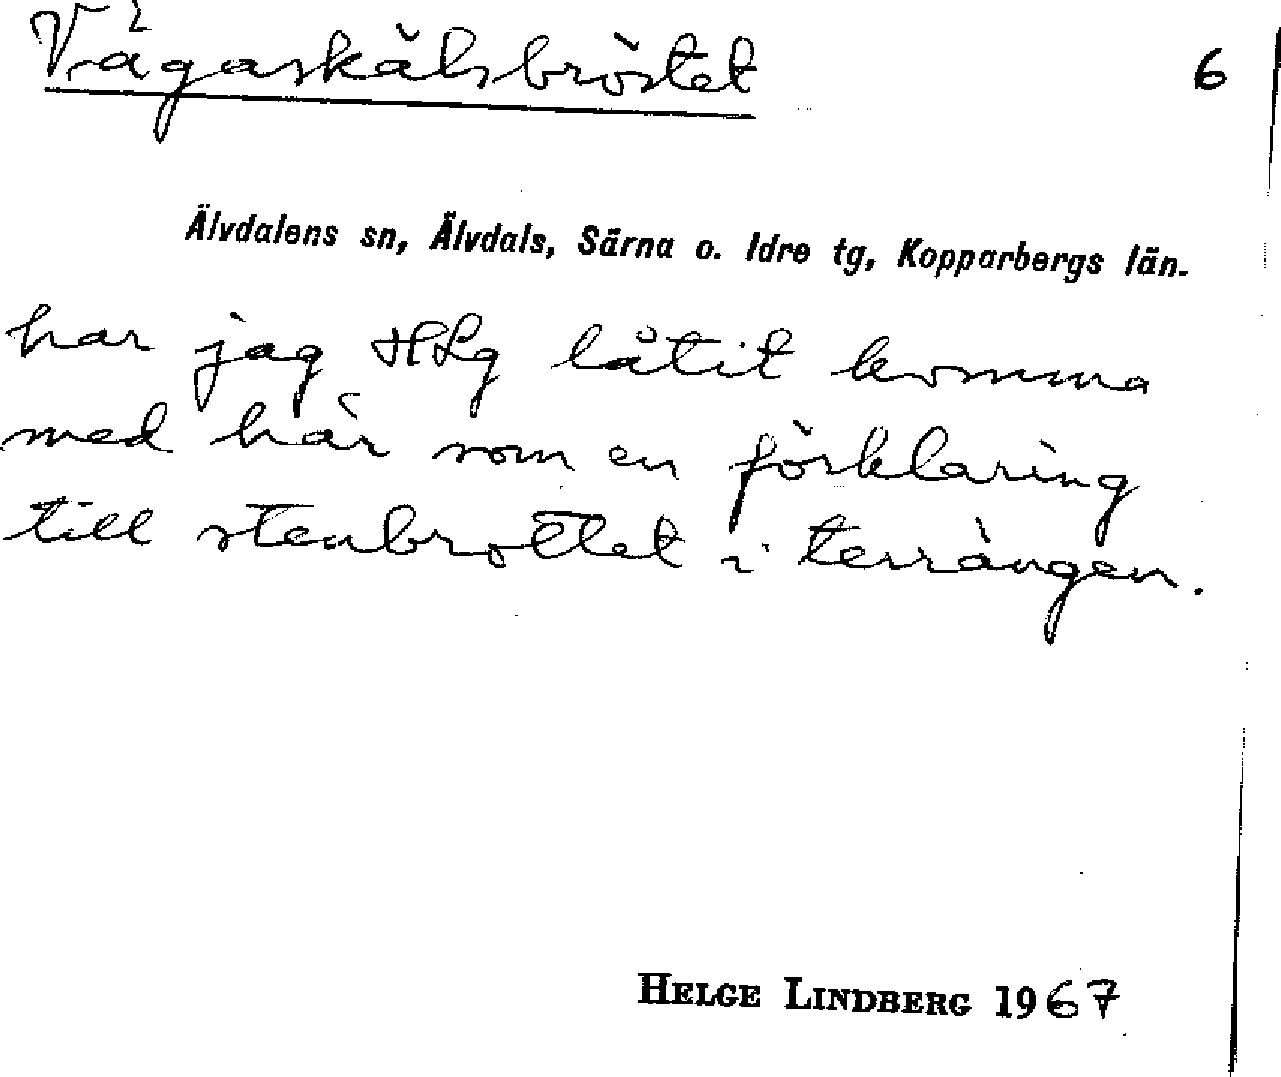 Vågaskälsbröstet 6
Älvdalens sn, Älvdals, Särna o. Idre tg, Kopparbergs län.
har jag HLg låtit komma
med här som en förklaring
till stenbrottet i terrängen.
HELGE LINDBERG 1967